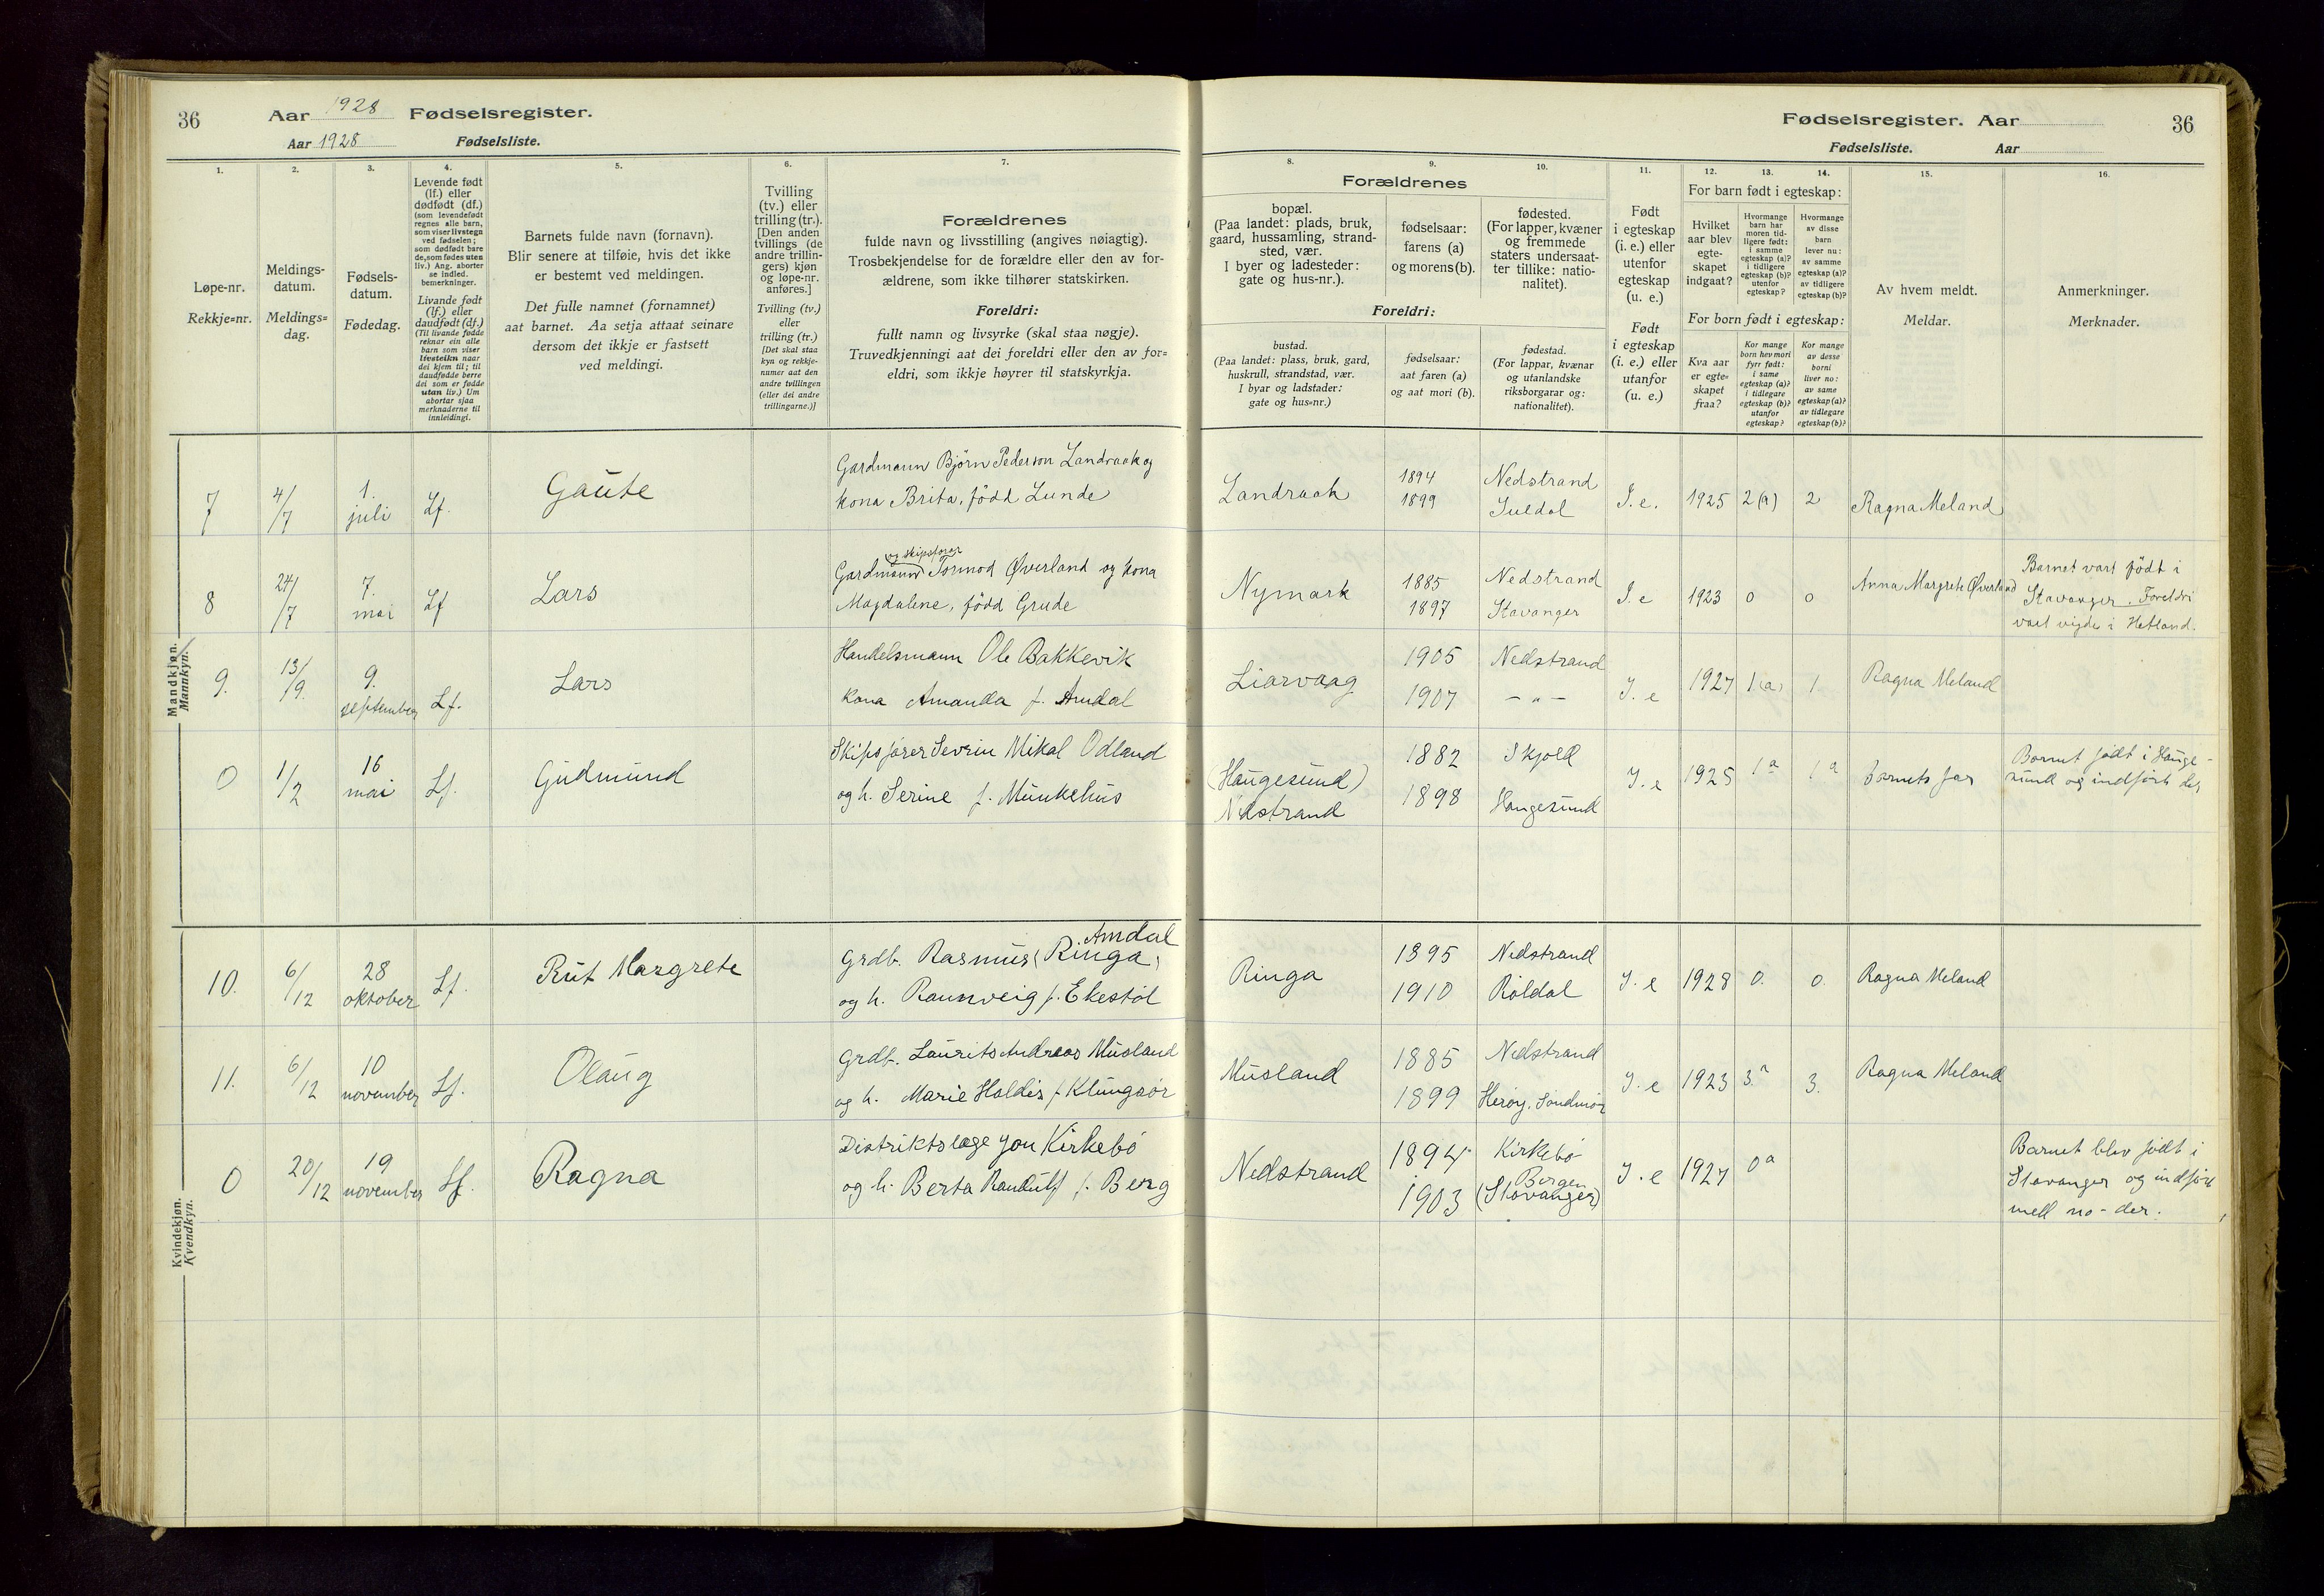 36
Aar 1928 Fødselsregister.
Aar 1928 Fødselsliste.
1.
2.
3.
4.
5.
6.
7.
Løpe-nr.
Rekkje=nr.
Meldings-
datum.
Meldings=
dag.
Fødsels-
datum.
Fødedag.
Levende født
(lf.) eller
dødfødt (df.)
(som levendefødt
regnes alle barn,
som viser livstegn
ved fødselen;
som dødfødt bare
de, som fødes uten
liv.) Ang. aborter
se indled.
bemerkninger.
Livande født
(lf.) eller
daudfødt (df.)
(Til livande fødde
reknar ein alle
barn som viser
livsteikn naar
dei kjem til; til
daudfødde berre
dei som er fødde
utan liv.) Um
abortar sjaa
merknaderne til
innleidingi.
Barnets fulde navn (fornavn).
Blir senere at tilføie, hvis det ikke
er bestemt ved meldingen.
Det fulle namnet (fornamnet)
aat barnet. Aa setja attaat seinare
dersom det ikkje er fastsett
ved meldingi.
Tvilling
(tv.) eller
trilling (tr.).
[Den anden
tvillings (de
andre trillin-
gers) kjøn
og løpe-nr.
anføres.]
Tvilling (tv.)
eller
trilling (tr.)
[Det skal staa
kyn og rekkje-
numer aat den
andre tvillingen
(eller dei andre
trillingarne.)]
Forældrenes
fulde navn og livsstilling (angives nøiagtig).
Trosbekjendelse for de forældre eller den av for-
ældrene, som ikke tilhører statskirken.
Foreldri:
fullt namn og livsyrke (skal staa nøgje).
Truvedkjenningi aat dei foreldri eller den av for=
eldri, som ikkje høyrer til statskyrkja.
Mandkjøn.
Mannkyn.
7
4/7
1.
juli
Lf.
Gaute
Gardmann Bjørn Pederson Landraak og
kona Brita, född Lunde
8
24/7
7.
mai
Lf
Lars
og skipsfører
Gardmann Tormod Øverland og kona
Magdalene, född Grude
9.
13/9.
9.
september
Lf.
Lars
Handelsmann Ole Bakkevik
Kona Amanda f. Amdal
0
1/2
16
mai
Lf.
Gudmund
Skipsfører Sevrin Mikal Odland
og h. Serine f. Munkehus
10.
6/12
28
oktober
Lf.
Rut Margrete
Amdal
Grdb. Rasmus (Ringa)
og h. Raunveig f. Ekestöl
11.
6/12
10
november
Lf.
Olaug
Grdb. Laurits Andreas Musland
og h. Marie Haldis f. Klungsör
Kvindekjøn.
Kvendkyn.
0
20/12
19
november
Lf.
Ragna
Distriktslæge Jon Kirkebö
og h. Berta Randulff f. Berg
Fødselsregister. Aar
36
Fødselsliste. Aar
8.
9.
10.
11.
12.
13.
14.
15.
16.
Forældrenes
bopæl.
(Paa landet: plads, bruk,
gaard, hussamling, strand-
sted, vær.
I byer og ladesteder:
gate og hus-nr.).
fødselsaar:
farens (a)
og morens (b).
fødested.
(For lapper, kvæner
og fremmede
staters undersaat-
ter tillike: natio-
nalitet).
Foreldri:
bustad.
(Paa landet: plass, bruk, gard,
huskrull, strandstad, vær.
I byar og ladstader:
gate og hus=nr.)
fødselsaar:
aat faren (a)
og aat mori (b).
fødestad.
(For lappar, kvænar
og utanlandske
riksborgarar og:
nationalitet).
Født
i egteskap
(i. e.) eller
utenfor
egteskap
(u. e.)
Født
i egteskap
(i. e.) eller
utanfor
(u. e.)
For barn født i egteskap:
Hvilket
aar blev
egte-
skapet
indgaat?
Hvormange
barn har
moren tid-
ligere født:
i samme
egteskap (a)?
i tidligere
egteskap (b)?
utenfor
egteskap?
Hvormange
av disse
barn
lever nu:
av samme
egteskap (a)?
av tidligere
egteskap (b)?
For born født i egteskap:
Kva aar
er egte=
skapet
fraa?
Kor mange
born hev mori
fyrr født:
i same
egteskap (a)?
i tidlegare
egteskap (b)?
utanfor
egteskap?
Kor mange
av desse
borni
liver no:
av same
egteskap (a)?
av tidlegare
egteskap (b)?
Av hvem meldt.
Meldar.
Anmerkninger.
Merknader.
Landraak
1894
1899
Nedstrand
Suldal
I. e.
1925
2 (a)
2
Ragna Meland
Nymark
1885
1897
Nedstrand
Stavanger
I. e
1923
0
0
Anna Margrete Øverland
Barnet vart födt i
Stavanger. Foreldri
vart vigde i Hetland.
Liarvaag
1905
1907
Nedstrand
— „ —
I. e
1927
1 (a)
1
Ragna Meland
(Haugesund)
Nedstrand
1882
1898
Skjold
Haugesund
I. e
1925
1 a
1 a
barnets far
Barnet födt i Hauge-
sund og indfört der
Ringa
1895
1910
Nedstrand
Röldal
I. e
1928
0.
0.
Ragna Meland
Musland
1885
1899
Nedstrand
Heröy, Söndmör
I. e
1923
3. a
3.
Ragna Meland
Nedstrand
1894
1903
Kirkebö
Bergen
(Stavanger)
I. e
1927
0 a
Barnet blev födt i
Stavanger og indfört
med no- der.